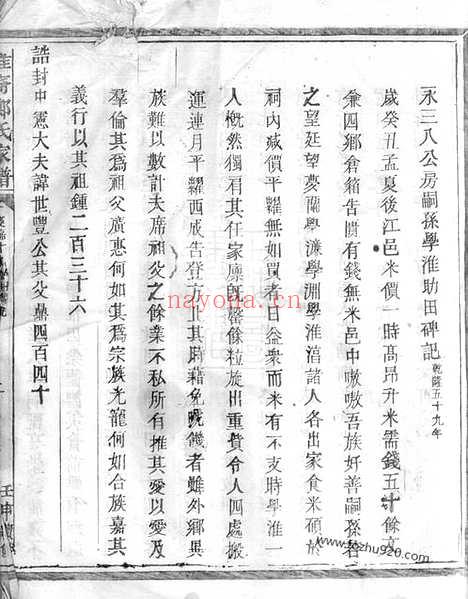 永三八公房嗣孫學淮助田碑記 乾隆五十九年
歲癸丑孟夏後江邑米價一時髙昂升米需錢五十餘文
兼四鄉倉箱告匱有錢無米邑中嗷嗷吾族好善嗣孫若
之望延望夢蘭學濂學淵學淮清諸人各出家食米碩於
祠内藏價平糶無如買者日益衆而米有不支時學淮一
人慨然獨肩其任家廪旣罄餘粒旋出重貲令人四處搬
運連月平糶西成告登方止其時藉免㿜饑者雖外鄉異
族難以數計夫席祖父之餘業不私所有推其愛以愛及
羣倫其為祖父廣惠何如其為宗族光龍何如合族嘉其
義行以其祖鍾二百三十六
誥封中憲大夫諱世豐公其父鼎四百四十
鄭氏家譜
壬申
nayona.cn
www.kfzhu920.com